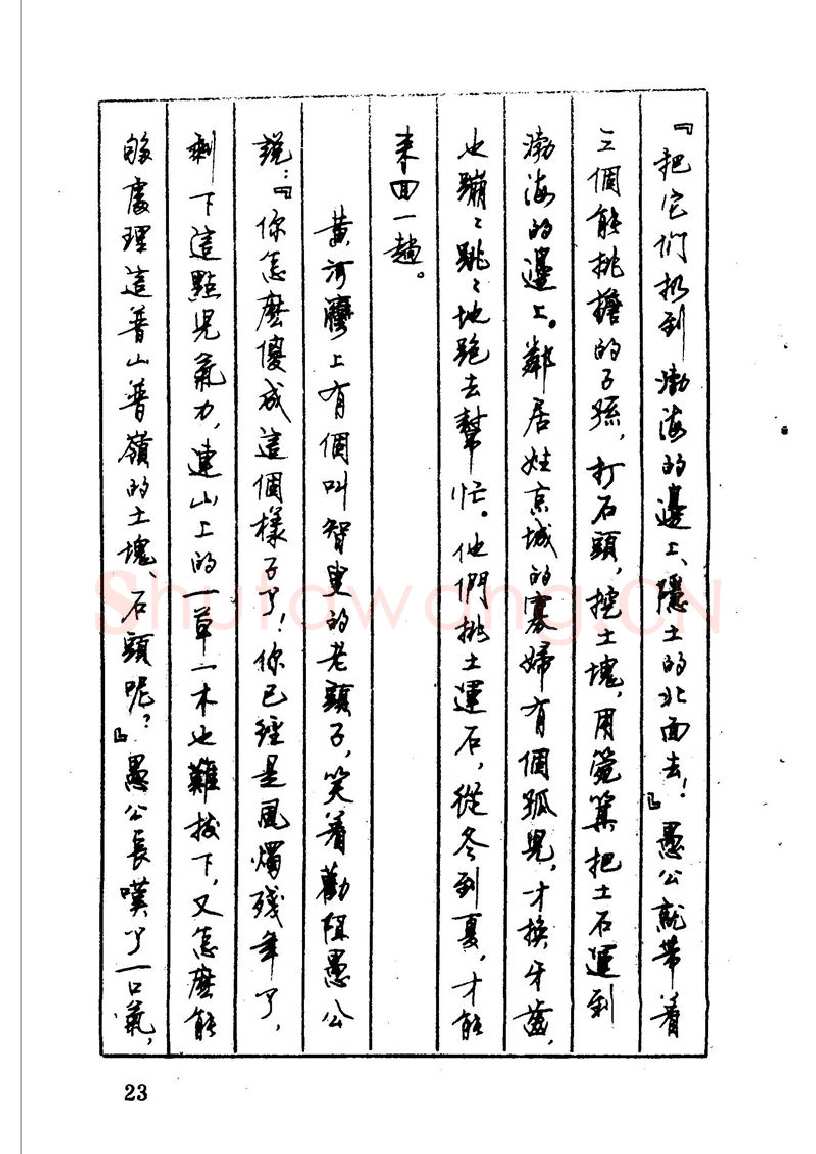 『把它们扔到渤海的邊上、隱土的北面去！』愚公就带着
三個能挑擔的子孫，打石頭，挖土塊，用箢箕把土石運到
渤海的邊上。鄰居姓京城的寡婦有個孤兒，才换牙齒，
也蹦〻跳〻地跑去幫忙。他們挑土運石，從冬到夏，才能
来回一趟。
黄河灣上有個叫智叟的老頭子，笑着勸阻愚公
說：『你怎麽傻成這個樣子了！你已經是風燭残年了，
剩下這點兒氣力，連山上的一草一木也難拔下，又怎麽能
够處理這普山普嶺的土塊、石頭呢？』愚公長嘆了一口氣，
23
Shufawang.CN